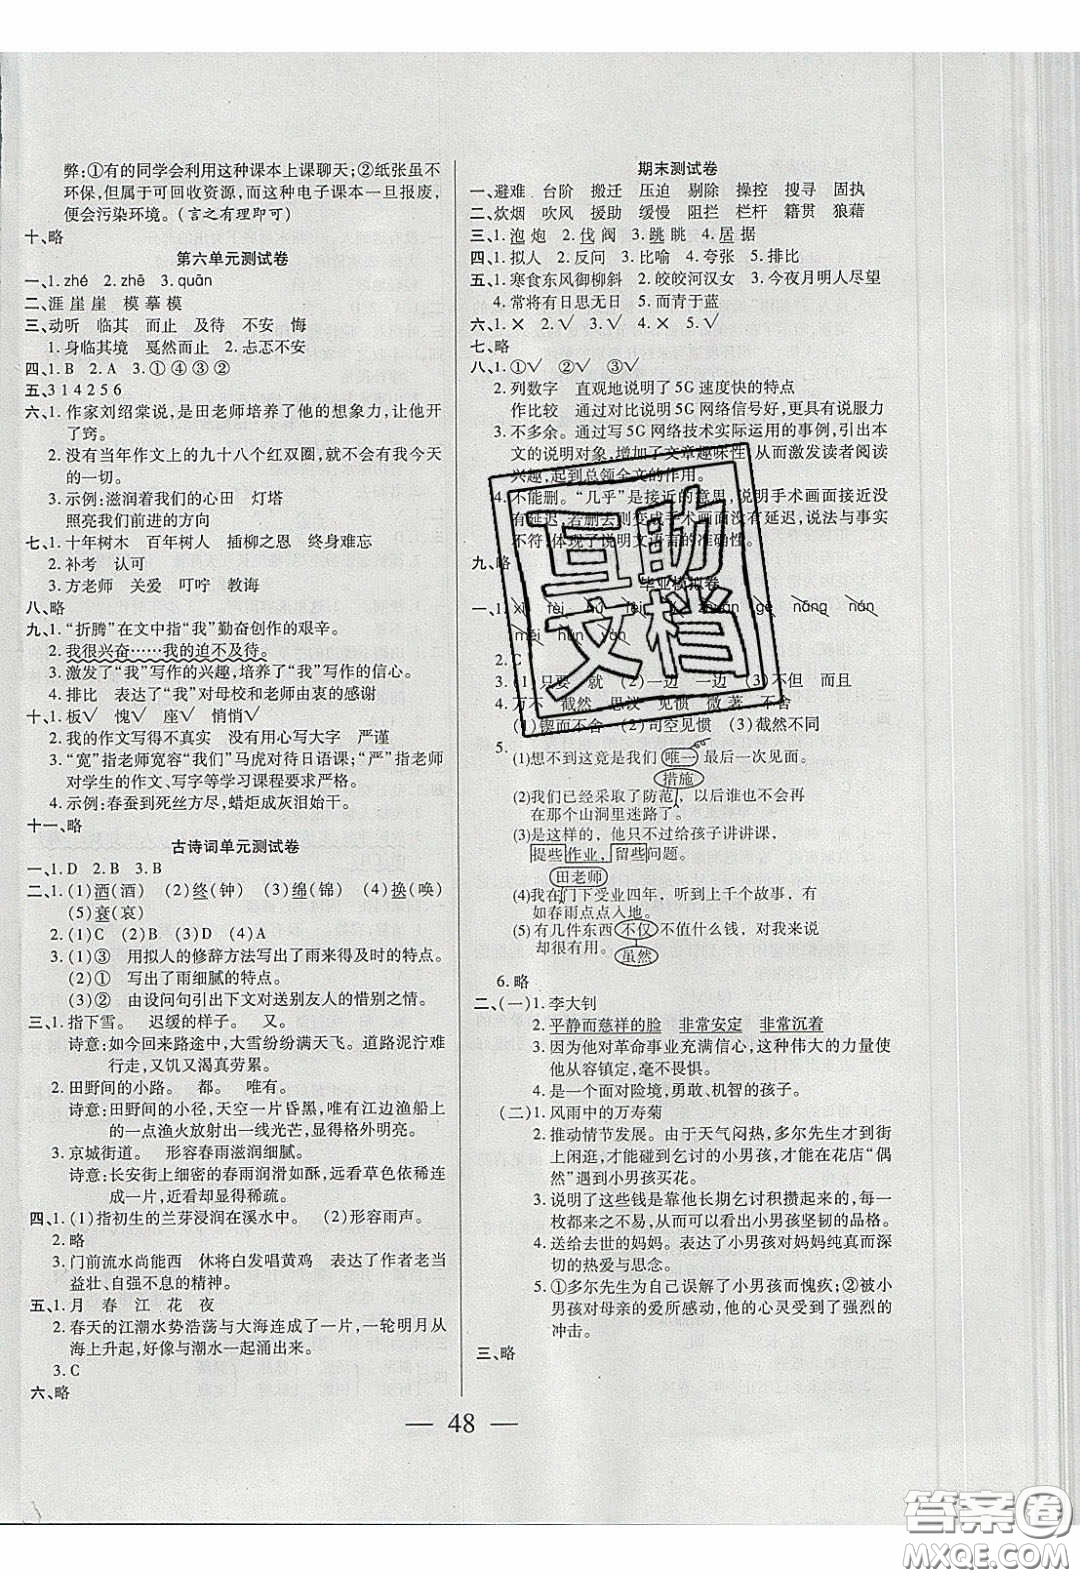 弊:①有的同学会利用这种课本上课聊天;②纸张虽不
环保,但属于可回收资源,而这种电子课本一旦报废,
便会污染环境。(言之有理即可)
十、略
第六单元测试卷
一、1. zhé 2. zhē 3. quān
二、涯 崖 崖 模 摹 模
三、动听 临其 而止 及待 不安 悔
1. 身临其境 戛然而止 2. 忐忑不安
四、1. B 2. A 3. ①④③②
五、3 1 4 2 5 6
六、1. 作家刘绍棠说,是田老师培养了他的想象力,让他开
了窍。
2. 没有当年作文上的九十八个红双圈,就不会有我今天
的一切。
3. 示例:滋润着我们的心田 灯塔
照亮我们前进的方向
七、1. 十年树木 百年树人 插柳之恩 终身难忘
2. 补考 认可
3. 方老师 关爱 叮咛 教诲
八、略
九、1. “折腾”在文中指“我”勤奋创作的艰辛。
2. 我很兴奋……我的迫不及待。
3. 激发了“我”写作的兴趣,培养了“我”写作的信心。
4. 排比 表达了“我”对母校和老师由衷的感谢
十、1. 板√ 愧√ 座√ 悄悄√
2. 我的作文写得不真实 没有用心写大字 严谨
3. “宽”指老师宽容“我们”马虎对待日语课;“严”指老师
对学生的作文、写字等学习课程要求严格。
4. 示例:春蚕到死丝方尽,蜡炬成灰泪始干。
十一、略
古诗词单元测试卷
一、1. D 2. B 3. B
二、1. (1)洒(酒) (2)终(钟) (3)绵(锦) (4)换(唤)
(5)衰(哀)
2. (1)C (2)B (3)D (4)A
3. (1)③ 用拟人的修辞方法写出了雨来得及时的特点。
(2)① 写出了雨细腻的特点。
(3)② 由设问句引出下文对送别友人的惜别之情。
三、1. 指下雪。 迟缓的样子。 又。
诗意:如今回来路途中,大雪纷纷满天飞。道路泥泞难
行走,又饥又渴真劳累。
2. 田野间的小路。 都。 唯有。
诗意:田野间的小径,天空一片昏黑,唯有江边渔船上
的一点渔火放射出一线光芒,显得格外明亮。
3. 京城街道。 形容春雨滋润细腻。
诗意:长安街上细密的春雨润滑如酥,远看草色依稀连
成一片,近看却显得稀疏。
四、1. (1)指初生的兰芽浸润在溪水中。 (2)形容雨声。
2. 略
3. 门前流水尚能西 休将白发唱黄鸡 表达了作者老当
益壮、自强不息的精神。
五、1. 月 春 江 花 夜
2. 春天的江潮水势浩荡与大海连成了一片,一轮明月从
海上升起,好像与潮水一起涌出来。
3. C
六、略
期末测试卷
一、避难 台阶 搬迁 压迫 剔除 操控 搜寻 固执
二、炊烟 吹风 援助 缓慢 阻拦 栏杆 籍贯 狼藉
三、1. 泡 炮 2. 伐 阀 3. 跳 眺 4. 居 据
四、1. 拟人 2. 反问 3. 比喻 4. 夸张 5. 排比
五、1. 寒食东风御柳斜 2. 皎皎河汉女 3. 今夜月明人尽望
4. 常将有日思无日 5. 而青于蓝
六、1. × 2. √ 3. √ 4. × 5. √
七、略
八、1. ①√ ②√ ③√
2. 列数字 直观地说明了5G速度快的特点
作比较 通过对比说明5G网络信号好,更具说服力
3. 不多余。通过写5G网络技术实际运用的事例,引出本
文的说明对象,增加了文章趣味性,从而激发读者阅读
兴趣,起到总领全文的作用。
4. 不能删。“几乎”是接近的意思,说明手术画面接近没
有延迟,若删去则变成手术画面没有延迟,说法与事实
不符,体现了说明文语言的准确性。
九、略
毕业模拟卷
一、1. xì lèi zhuān gē nāng nán
méi hùn yàn
2. C
3. (1)只要 就 (2)一边 一边 (3)不但 而且
4. 万不 截然 思议 见惯 微 著 不舍
(1)锲而不舍 (2)司空见惯 (3)截然不同
5.
(1)想不到这竟是我们唯一最后一次见面。
措施
(2)我们已经采取了防范,以后谁也不可能会
在那个山洞里迷路了。
(3)是这样的,他只不过给孩子讲讲课,
提些作业,留些问题。
田老师
(4)我在门下受业四年,听到上千个故事,有
如春雨点点入地。
(5)有几件东西不仅不值什么钱,对我来说
却很有用。虽然
6. 略
二、(一)1. 李大钊
2. 平静而慈祥的脸 非常安定 非常沉着
3. 因为他对革命事业充满信心,这种伟大的力量让
他从容镇定,毫不畏惧。
4. 是一个面对险境,勇敢、机智的孩子。
(二)1. 风雨中的万寿菊
2. 推动情节发展。由于天气闷热,多尔先生才到街
上闲逛,才能碰到乞讨的小男孩,才能在花店“偶
然”遇到小男孩买花。
3. 说明了这些钱是靠他长期乞讨积攒起来的,每一
枚都来之不易,从而突出小男孩坚韧的品格。
4. 送给去世的妈妈。表达了小男孩对妈妈纯真而深
切的热爱与思念。
5. ①多尔先生为自己误解了小男孩而愧疚;②被小
男孩对母亲的爱所感动,他的心灵受到了强烈的
冲击。
三、略
— 48 —
互助
文档
答案卷
MXQE.COM